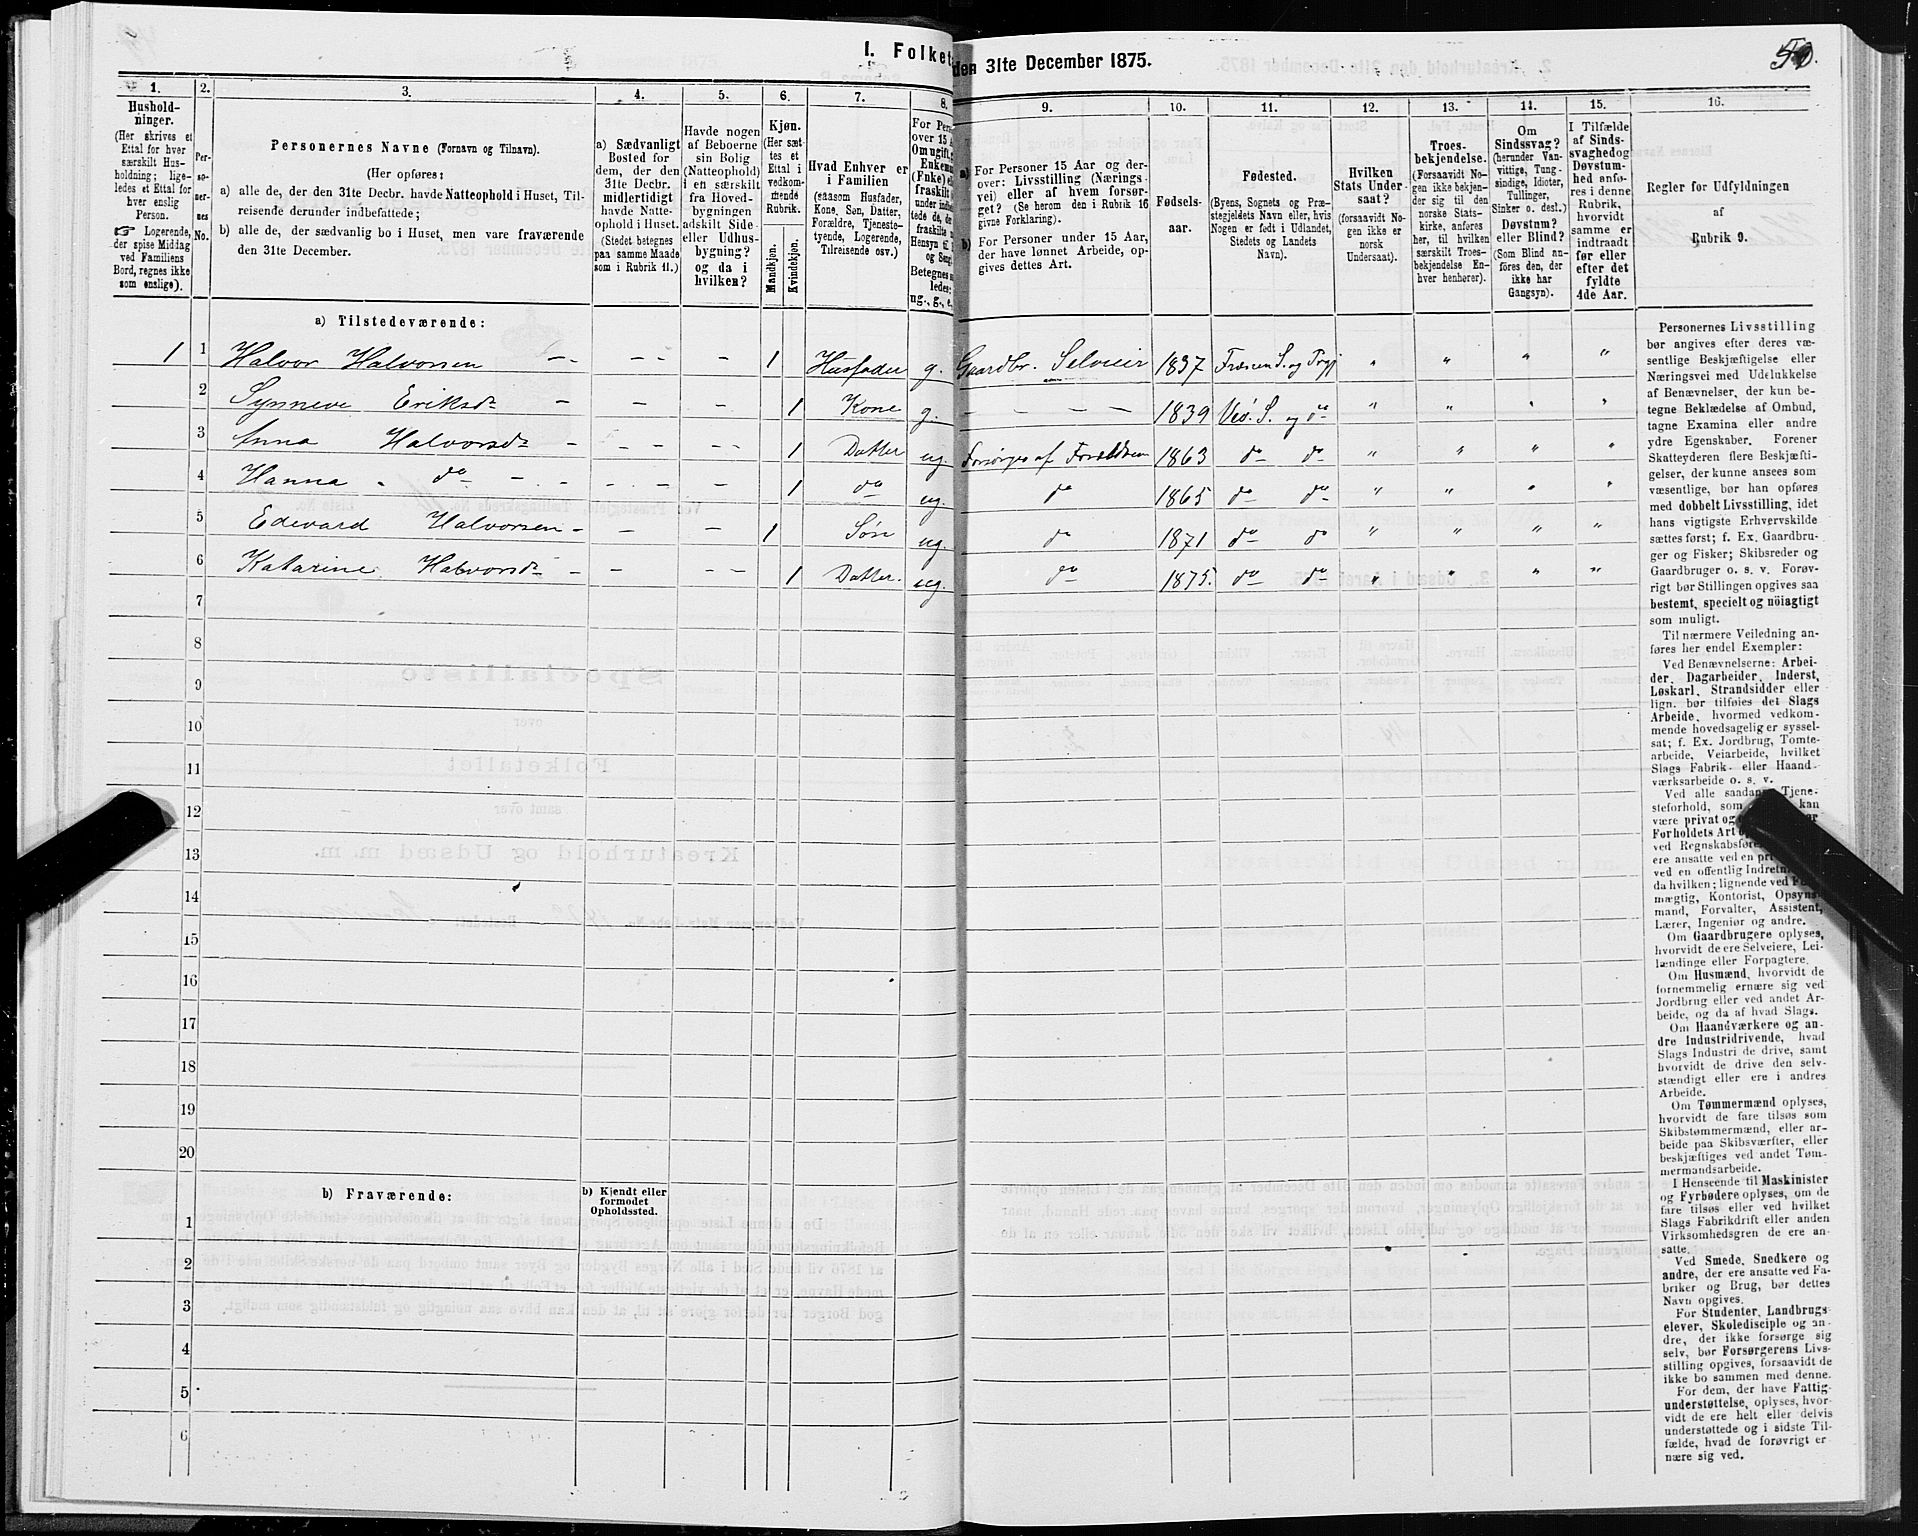 I. Folket
den 31te December 1875.
50.
1.
2.
3.
4.
5.
6.
7.
8.
9.
10.
11.
12.
13.
14.
15.
16.
Hushold-
ninger.
(Her skrives et
Ettal for hver
særskilt Hus-
holdning; lige-
ledes et Ettal for
hver enslig
Person.
☞ Logerende,
der spise Middag
ved Familiens
Bord, regnes ikke
som enslige).
Per-
so-
ner-
nes
No.
Personernes Navne (Fornavn og Tilnavn).
(Her opføres:
a) alle de, der den 31te Decbr. havde Natteophold i Huset, Til-
reisende derunder indbefattede;
b) alle de, der sædvanlig bo i Huset, men vare fraværende
den 31te December.
a) Sædvanligt
Bosted for
dem, der den
31te Decbr.
midlertidigt
havde Natte-
ophold i Huset.
(Stedet betegnes
paa samme Maade
som i Rubrik 11.)
Havde nogen
af Beboerne
sin Bolig
(Natteophold)
i en særskilt
fra Hoved-
bygningen
adskilt Side-
eller Udhus-
bygning?
og da i
hvilken?
Kjøn.
(Her sæt-
tes et
Ettal i
vedkom-
mende
Rubrik.
Mandkjøn.
Kvindekjøn.
Hvad Enhver er
i Familien
(saasom Husfader,
Kone, Søn, Datter,
Forældre, Tjeneste-
tyende, Logerende,
Tilreisende osv.)
For Pers
over 15 A
Om ugift,
Enkem
(Fnke) el
fraskilt
under indbe
tede de, de
fraskilte
Hensyn til
og Seng
Betegnes
ledes:
ug., g., e.
a) For Personer 15 Aar og der-
over: Livsstilling (Nærings-
vei) eller af hvem forsør-
get? (Se herom den i Rubrik 16
givne Forklaring).
b) For Personer under 15 Aar,
der have lønnet Arbeide, op-
gives dettes Art.
Fødsels-
aar.
Fødested.
(Byens, Sognets og Præ-
stegjeldets Navn eller, hvis
Nogen er født i Udlandet,
Stedets og Landets
Navn).
Hvilken
Stats Under-
saat?
(forsaavidt No-
gen ikke er
norsk
Undersaat).
Troes-
bekjendelse.
(Forsaavidt No-
gen ikke bekjen-
der sig til den
norske Stats-
kirke, anføres
her, til hvilken
særskilt Troes-
bekjendelse En-
hver henhører).
Om
Sindssvag?
(herunder Van-
vittige, Tung-
sindige, Idioter,
Tullinger,
Sinker o. desl.)
Døvstum?
eller Blind?
(Som Blind an-
føres den, der
ikke har
Gangsyn).
I Tilfælde
af Sinds-
svaghed og
Døvstum-
hed anfø-
res i denne
Rubrik,
hvorvidt
samme er
indtraadt
før eller
efter det
fyldte
4de Aar.
Regler for Udfyldningen
af
Rubrik 9.
a) Tilstedeværende:
1 1 Halvor Halvorsen - - - - - 1 Husfader g. Gaardbr. Selveier 1837 Fræsen S. og Prgj " " " "
2 Synneve Eriksdr - - - - 1 Kone g. - - - - 1839 Veø. S. og do " " " "
3 Anna Halvorsdr - - - - 1 Datter ug. Forsørges af Forældrene 1863 do do " " " "
4 Hanna " do - - - - - 1 do ug. do 1865 do do " " " "
5 Edevard Halvorsen - - - 1 Søn ug. do 1871 do do " " " "
6 Katarine Halvorsdr - - - - 1 Datter. ug. do 1875. do do " " " "
7
8
9
10
11
12
13
14
15
16
17
18
19
20
b) Fraværende:
b) Kjendt eller
formodet
Opholdssted.
1
2
3
4
5
6
Personernes Livsstilling
bør angives efter deres væ-
sentlige Beskjæftigelse eller
Næringsvei med Udelukkelse
af Benævnelser, der kun be-
tegne Beklædelse af Ombud,
tagne Examina eller andre
ydre Egenskaber. Forener
Skatteyderen flere Beskjæfti-
gelser, der kunne ansees som
væsentlige, bør han opføres
med dobbelt Livsstilling, idet
hans vigtigste Erhvervskilde
sættes først; f. Ex. Gaardbru-
ger og Fisker; Skibsreder og
Gaardbruger o. s. v. Forøv-
rigt bør Stillingen opgives saa
bestemt, specielt og nöiagtigt
som muligt.
Til nærmere Veiledning an-
føres her endel Exempler:
Ved Benævnelserne: Arbei-
der, Dagarbeider, Inderst,
Løskarl, Strandsidder eller
lign. bør tilføies det Slags
Arbeide, hvormed vedkom-
mende hovedsagelig er syssel-
sat; f. Ex. Jordbrug, Tomte-
arbeide, Veiarbeide, hvilket
Slags Fabrik- eller Haand-
værksarbeide o. s. v.
Ved alle saadan Tjene-
steforhold, som kan
være privat og
Forholdets Art
ved Regnskabsfør
ere ansatte ved en pri
ved en offentlig Indretn
da hvilken; lignende ved F
mægtig, Kontorist, Opsyns-
mand, Forvalter, Assistent,
Lærer, Ingeniør og andre.
Om Gaardbrugere oplyses,
hvorvidt de ere Selveiere, Lei-
lændinge eller Forpagtere.
Om Husmænd, hvorvidt de
fornemmelig ernære sig ved
Jordbrug eller ved andet Ar-
beide, og da af hvad Slags.
Om Haandværkere og an-
dre Industridrivende, hvad
Slags Industri de drive, samt
hvorvidt de drive den selv-
stændigt eller ere i andres
Arbeide.
Om Tømmermænd oplyses,
hvorvidt de fare tilsøs som
Skibstømmermænd, eller ar-
beide paa Skibsværfter, eller
beskjæftiges ved andet Tøm-
mermandsarbeide.
I Henseende til Maskinister
og Fyrbødere oplyses, om de
fare tilsøs eller ved hvilket
Slags Fabrikdrift eller anden
Virksomhedsgren de ere an-
satte.
Ved Smede, Snedkere og
andre, der ere ansatte ved Fa-
briker og Brug, bør dettes
Navn opgives.
For Studenter, Landbrugs-
elever, Skoledisciple og an-
dre, der ikke forsørge sig
selv, bør Forsørgerens Livs-
stilling opgives, forsaavidt de
ikke bo sammen med denne.
For dem, der have Fattig-
understøttelse, oplyses, hvor-
vidt de ere helt eller delvis
understøttede og i sidste Til-
fælde, hvad de forøvrigt er-
nære sig ved.